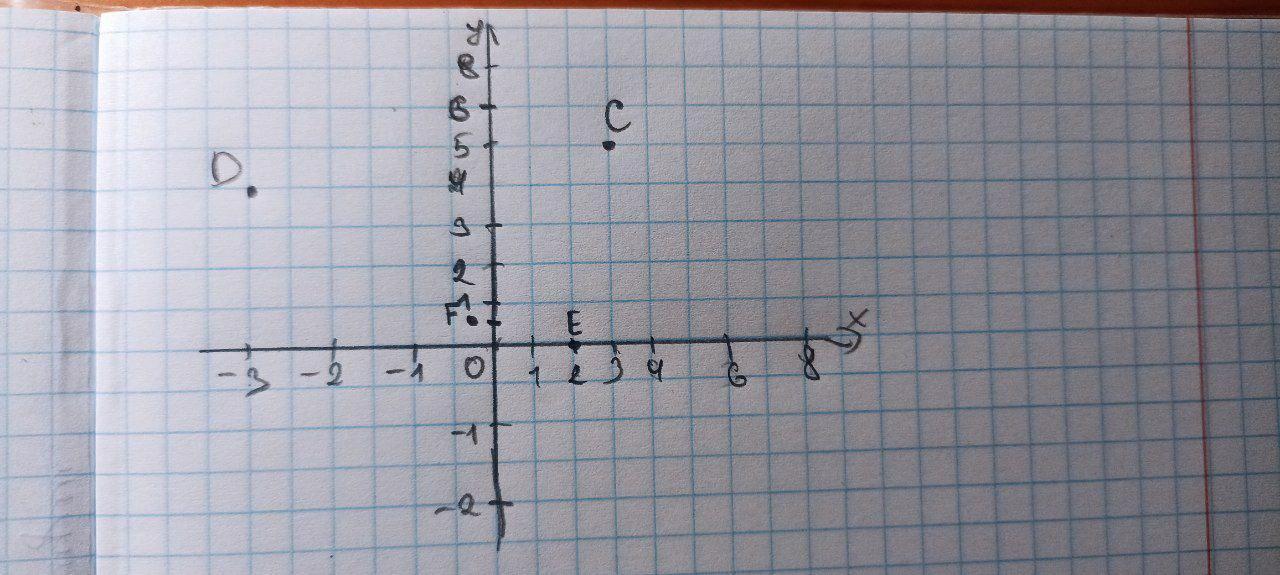 y
8
6
C
5
D
4
3
2
1
F
E
x
-3 -2 -1 0 1 2 3 4 6 8
-1
-2